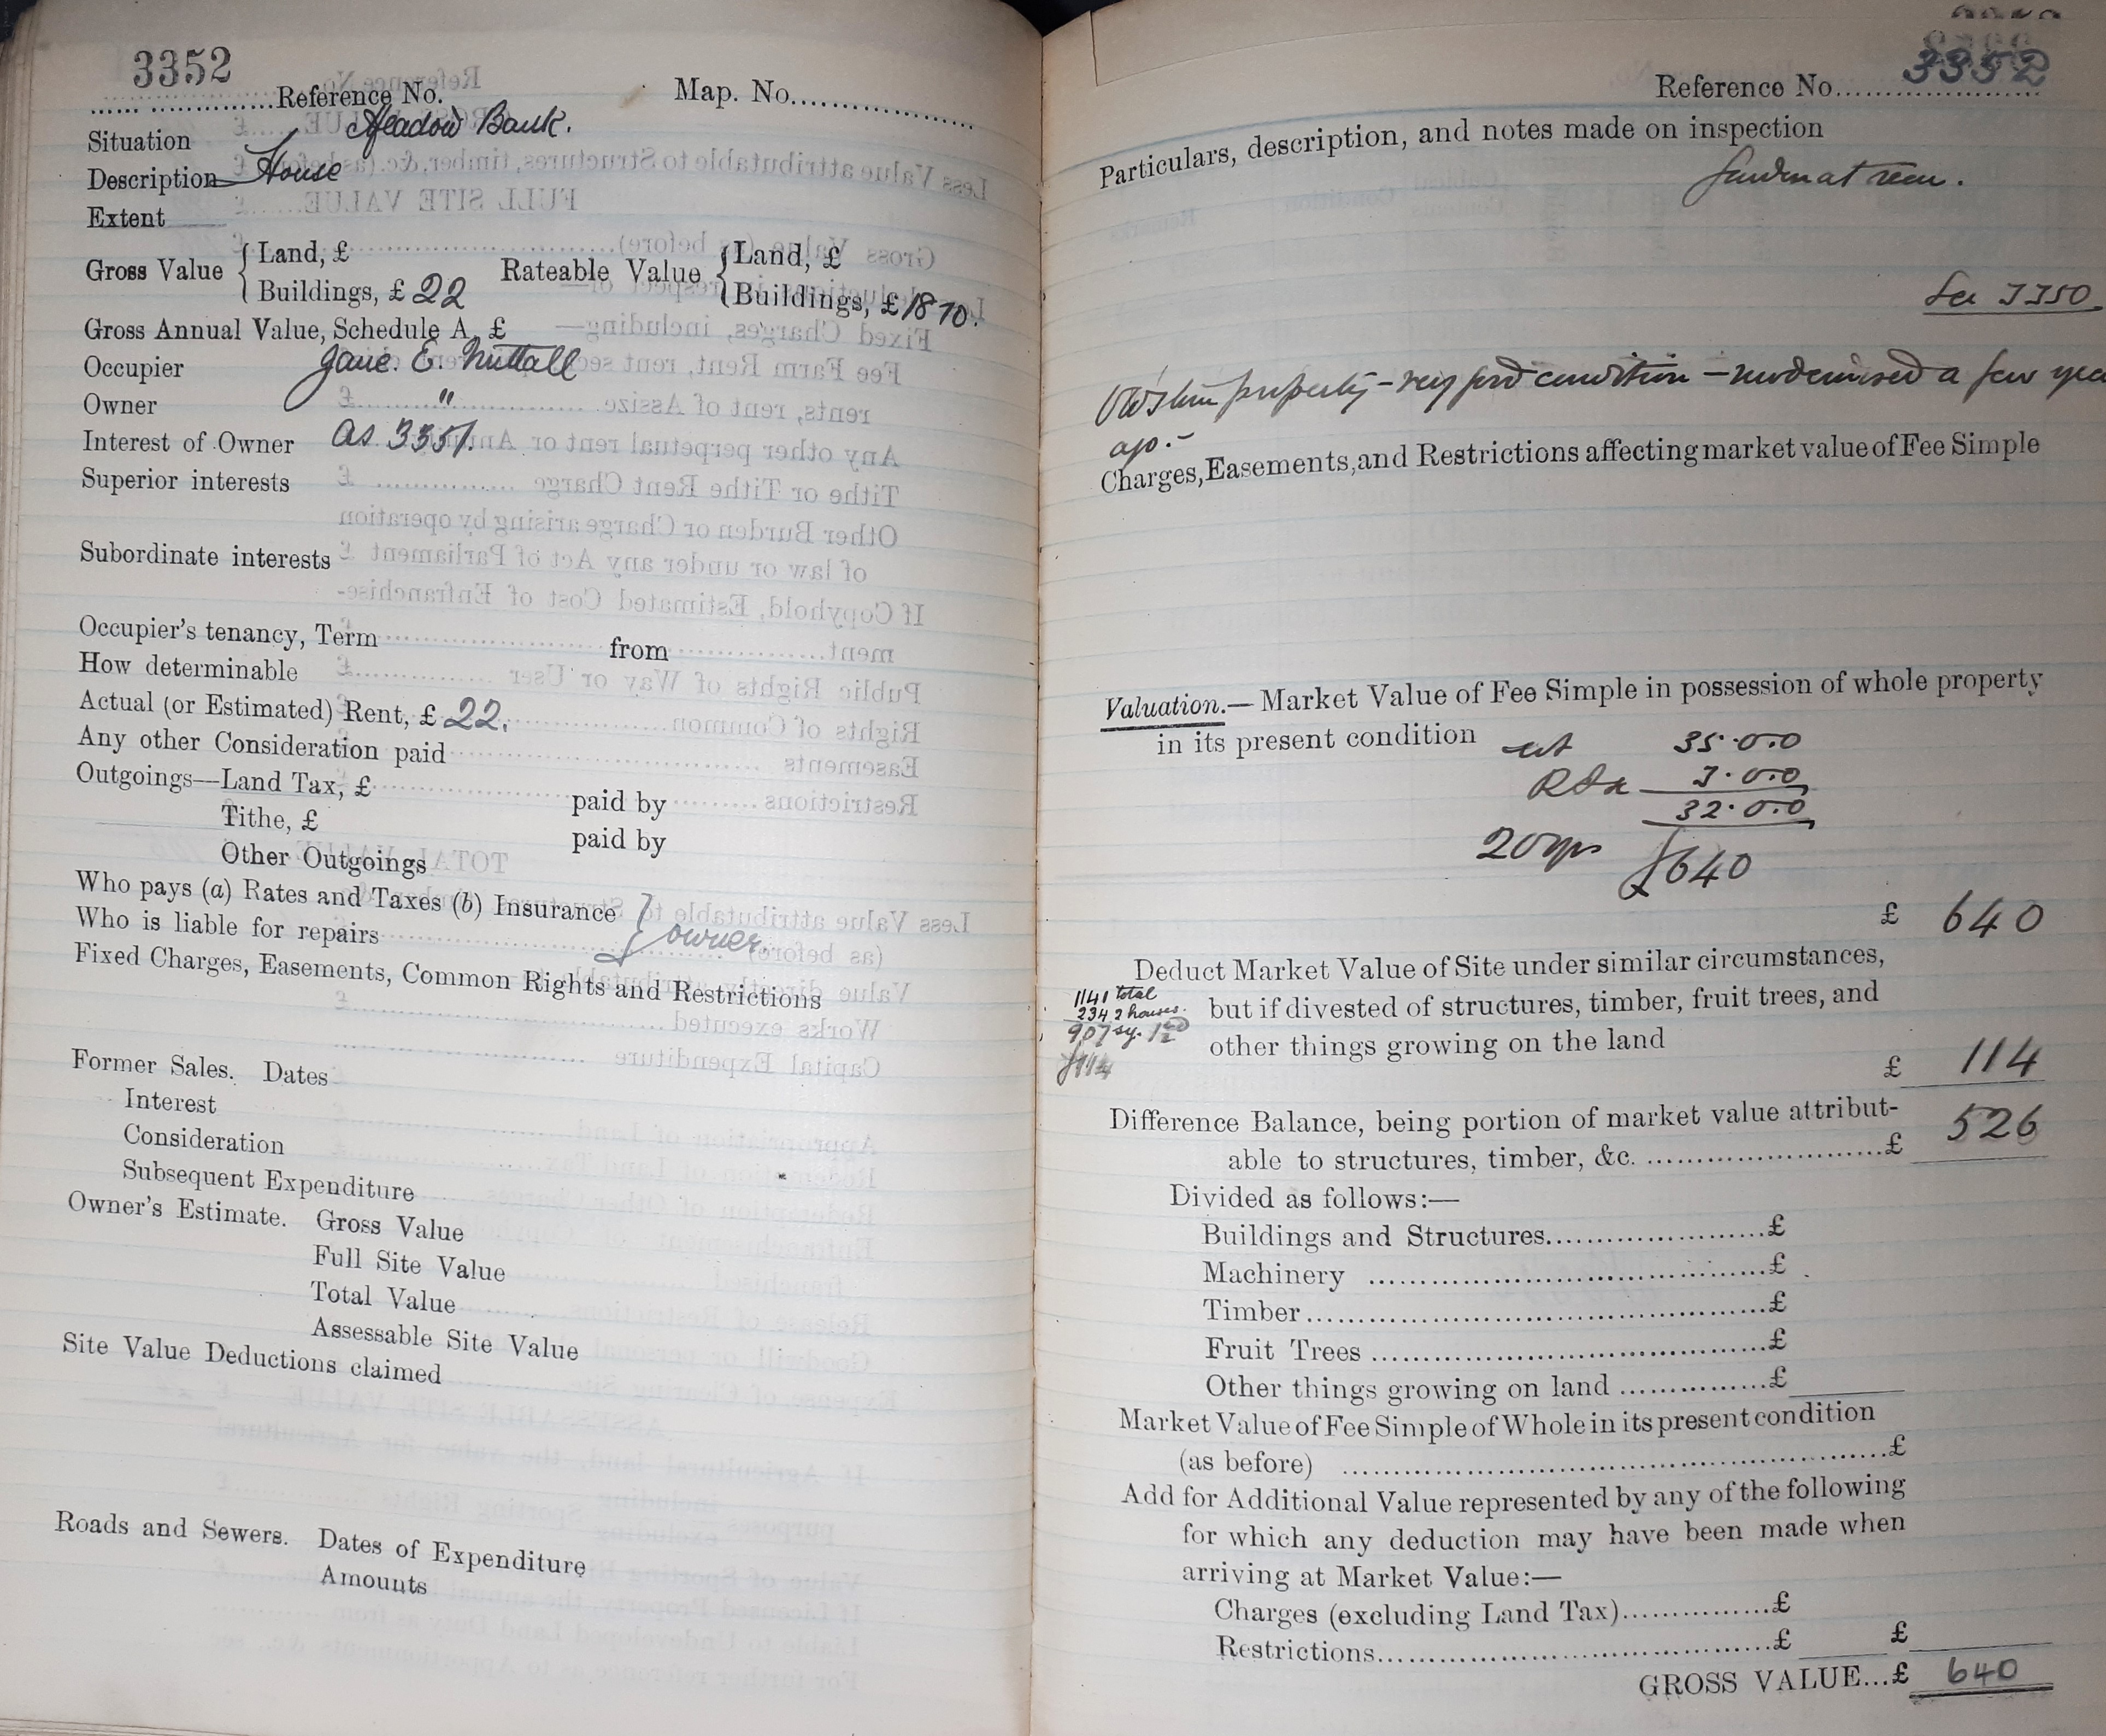 3352
Reference No. Map. No.
Situation Meadow Bank.
Description House
Extent
Gross Value { Land, £ Rateable Value { Land, £
Buildings, £ 22 Buildings, £ 18 10.
Gross Annual Value, Schedule A, £
Occupier Jane. E. Nuttall
Owner "
Interest of Owner As 3351.
Superior interests
Subordinate interests
Occupier's tenancy, Term from
How determinable
Actual (or Estimated) Rent, £ 22.
Any other Consideration paid
Outgoings—Land Tax, £ paid by
Tithe, £ paid by
Other Outgoings
Who pays (a) Rates and Taxes (b) Insurance
Who is liable for repairs } owner.
Fixed Charges, Easements, Common Rights and Restrictions
Former Sales. Dates
Interest
Consideration
Subsequent Expenditure
Owner's Estimate. Gross Value
Full Site Value
Total Value
Assessable Site Value
Site Value Deductions claimed
Roads and Sewers. Dates of Expenditure
Amounts
Reference No. 3352
Particulars, description, and notes made on inspection
Garden at rear.
See 3350
property - very good condition - modernised a few
ago.-
Charges, Easements, and Restrictions affecting market value of Fee Simple
Valuation.— Market Value of Fee Simple in possession of whole property
in its present condition est 35.0.0
3.0.0
32.0.0
20 yrs £640
£ 640
Deduct Market Value of Site under similar circumstances,
1141 total
234 2 houses.
907 sy.
£114
but if divested of structures, timber, fruit trees, and
other things growing on the land
£ 114
Difference Balance, being portion of market value attribut-
able to structures, timber, &c. £ 526
Divided as follows:—
Buildings and Structures £
Machinery £
Timber £
Fruit Trees £
Other things growing on land £
Market Value of Fee Simple of Whole in its present condition
(as before) £
Add for Additional Value represented by any of the following
for which any deduction may have been made when
arriving at Market Value:—
Charges (excluding Land Tax) £
Restrictions £ £
GROSS VALUE...£ 640